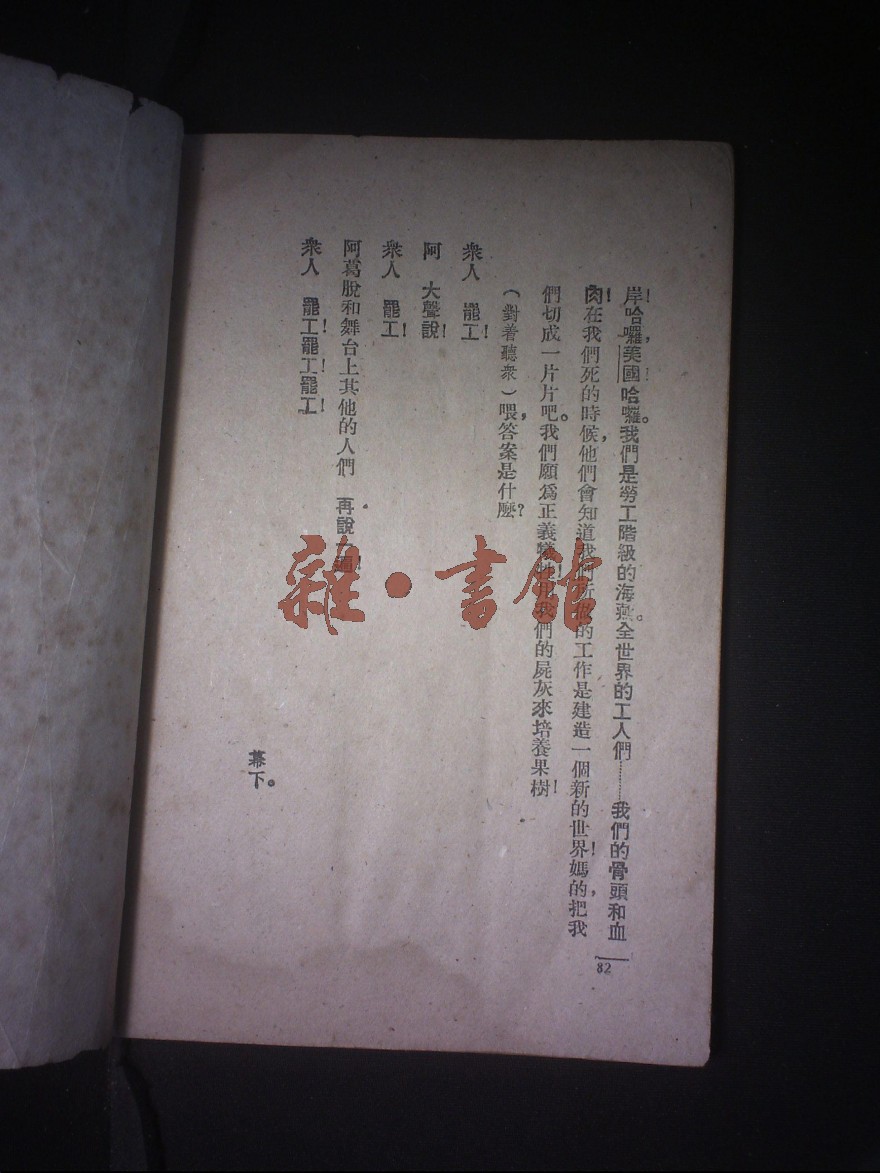 岸！哈囉，美國！哈囉。我們是勞工階級的海燕。全世界的工人們………我們的骨頭和血
肉！在我們死的時候，他們會知道我們所做的工作是建造一個新的世界！媽的，把我
們切成一片片吧。我們願爲正義犧牲！用我們的屍灰來培養果樹！
（對着聽衆）喂，答案是什麽？
衆人　罷工！
阿　大聲說！
衆人　罷工！
阿葛脫和舞台上其他的人們　再說一遍！
衆人　罷工！罷工！罷工！
幕下。
82
雜·書館